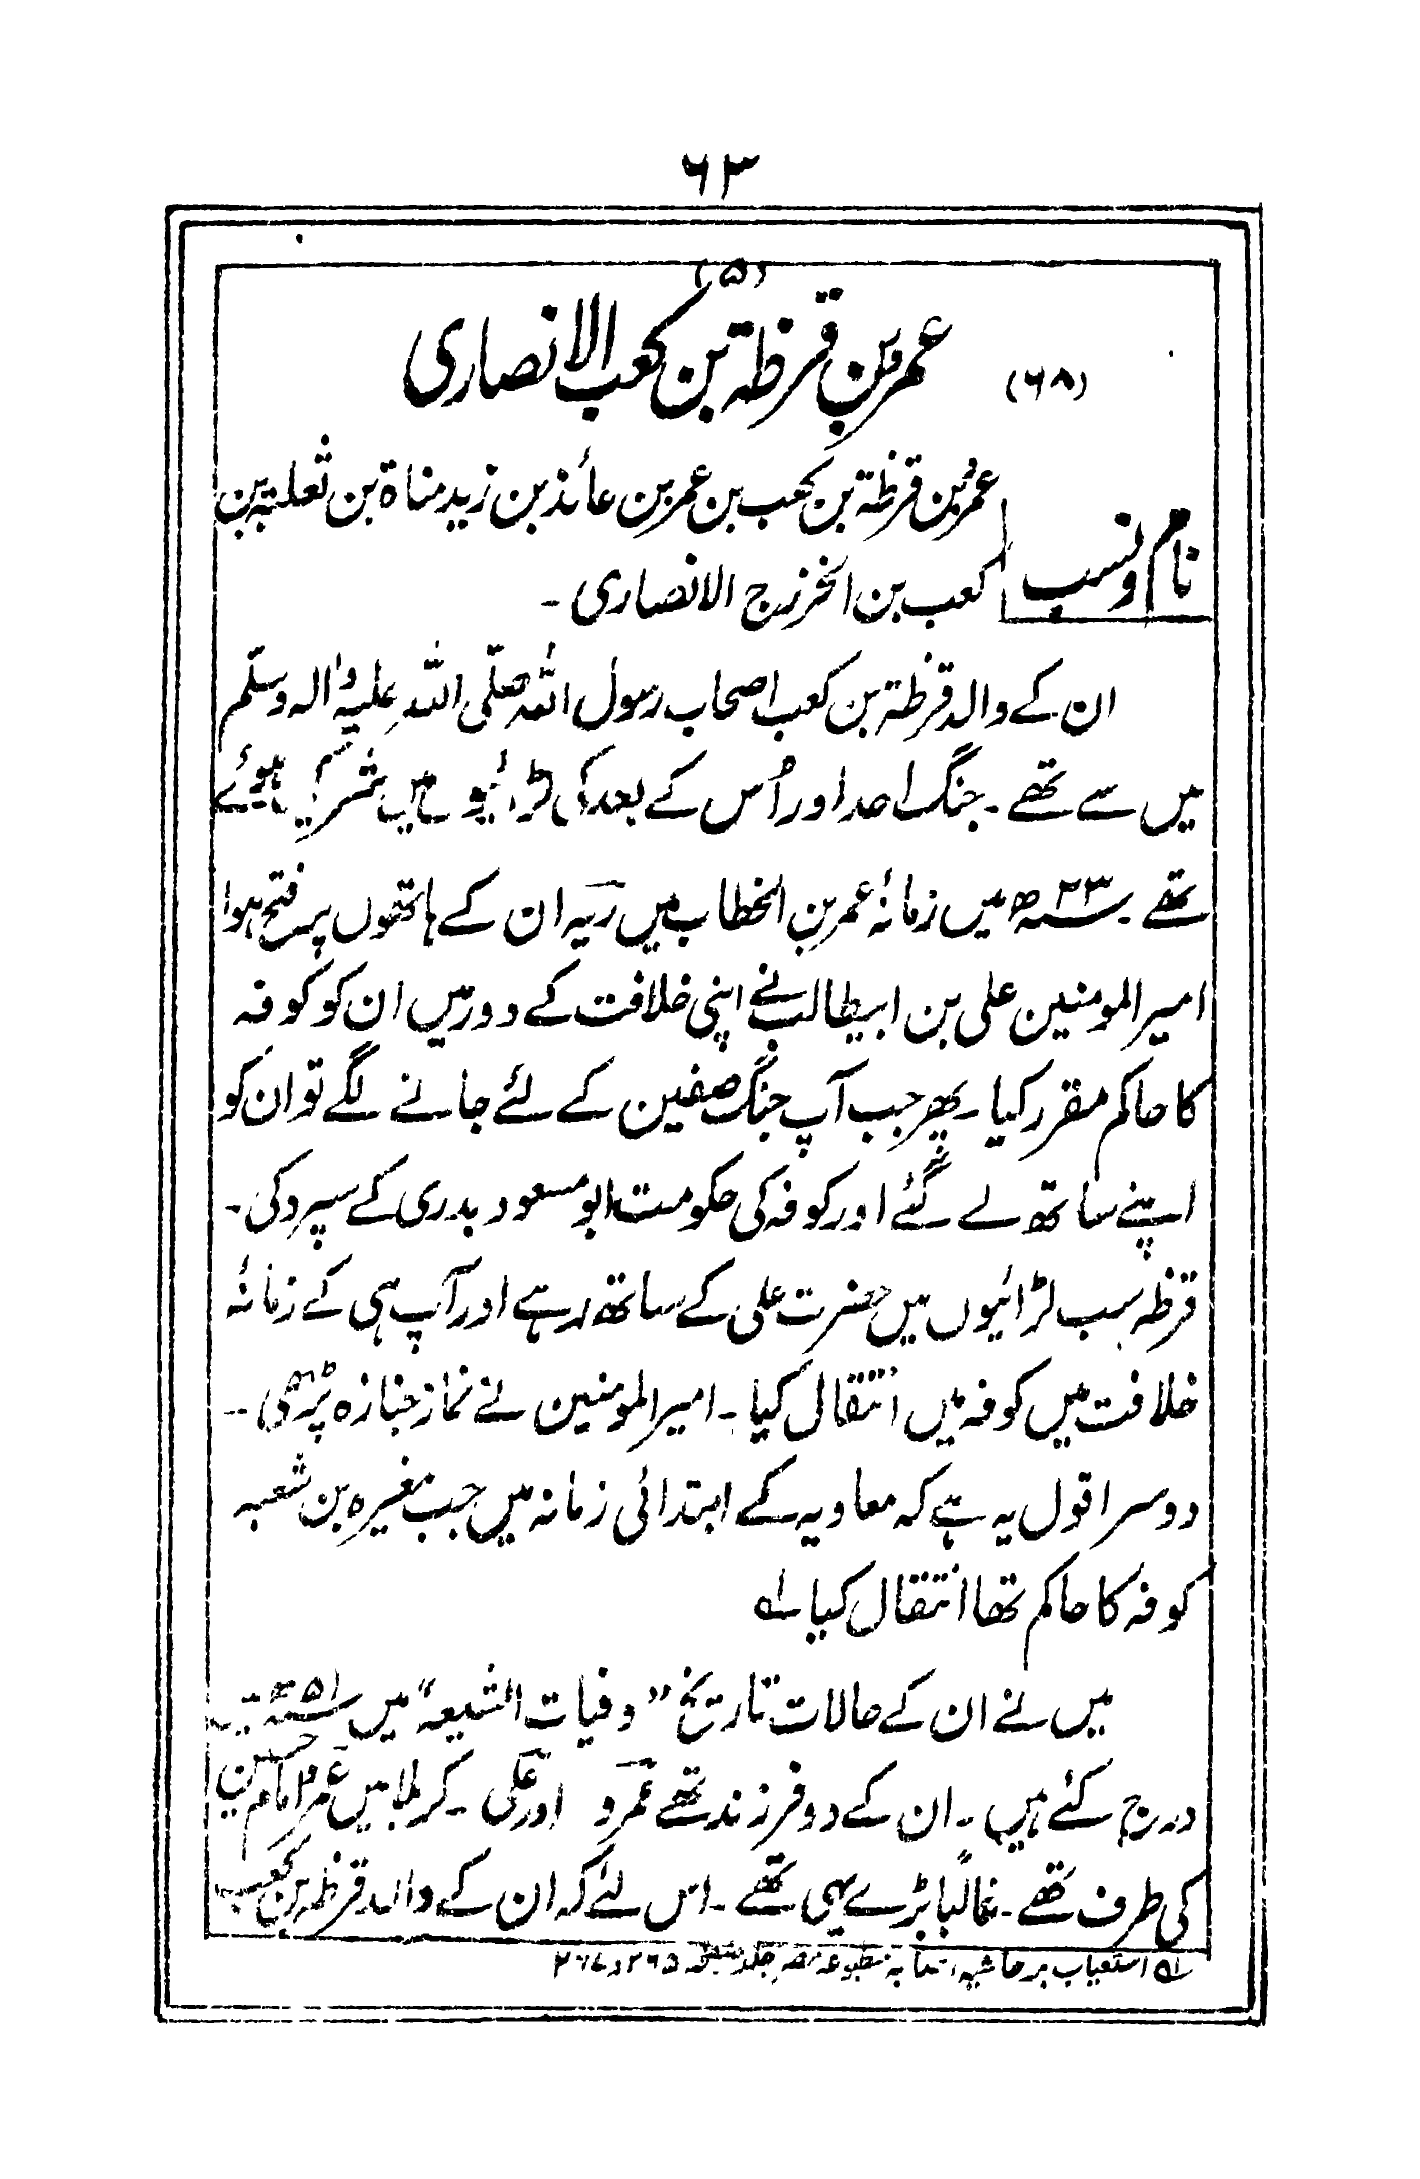 ۶۳
(۵)
(۶۸) عمر بن قرظة بن کعب الانصاری
نام و نسب
عمر بن قرظة بن کعب بن عمر بن عائذ بن زید مناة بن ثعلبة بن
کعب بن الخزرج الانصاری ۔
ان کے والد قرظة بن کعب اصحاب رسول اللہ صلّی اللہ علیہ واٰلہ وسلّم
میں سے تھے ۔ جنگ احد اور اُس کے بعد کی لڑائیوں میں شریک ہوئے
تھے ۔ ۲۳ھ میں زمانۂ عمر بن الخطاب میں رَیہ ان کے ہاتھوں پر فتح ہوا
امیرالمومنین علی بن ابیطالبؑ نے اپنی خلافت کے دور میں ان کو کوفہ
کا حاکم مقرر کیا ۔ پھر جب آپ جنگ صفین کے لئے جانے لگے تو ان کو
اپنے ساتھ لے گئے اور کوفہ کی حکومت ابو مسعود بدری کے سپرد کی ۔
قرظہ سب لڑائیوں میں حضرت علی کے ساتھ رہے اور آپ ہی کے زمانۂ
خلافت میں کوفہ میں انتقال کیا ۔ امیرالمومنین نے نماز جنازہ پڑھی ۔
دوسرا قول یہ ہے کہ معاویہ کے ابتدائی زمانہ میں جب مغیرہ بن شعبہ
کوفہ کا حاکم تھا انتقال کیا ؎۱
میں نے ان کے حالات تاریخ ”وفیات الشیعہ“ میں ۵۱ھ میں
درج کئے ہیں ۔ ان کے دو فرزند تھے عمرو اور علی ۔ کربلا میں عمر امام حسین
کی طرف تھے ۔ غالباً بڑے یہی تھے ۔ اس لئے کہ ان کے والد قرظہ بن کعب
؎۱ استعیاب بر حاشیہ اصابہ مطبوعہ مصر جلد صفحہ ۲۶۵ و ۲۶۷